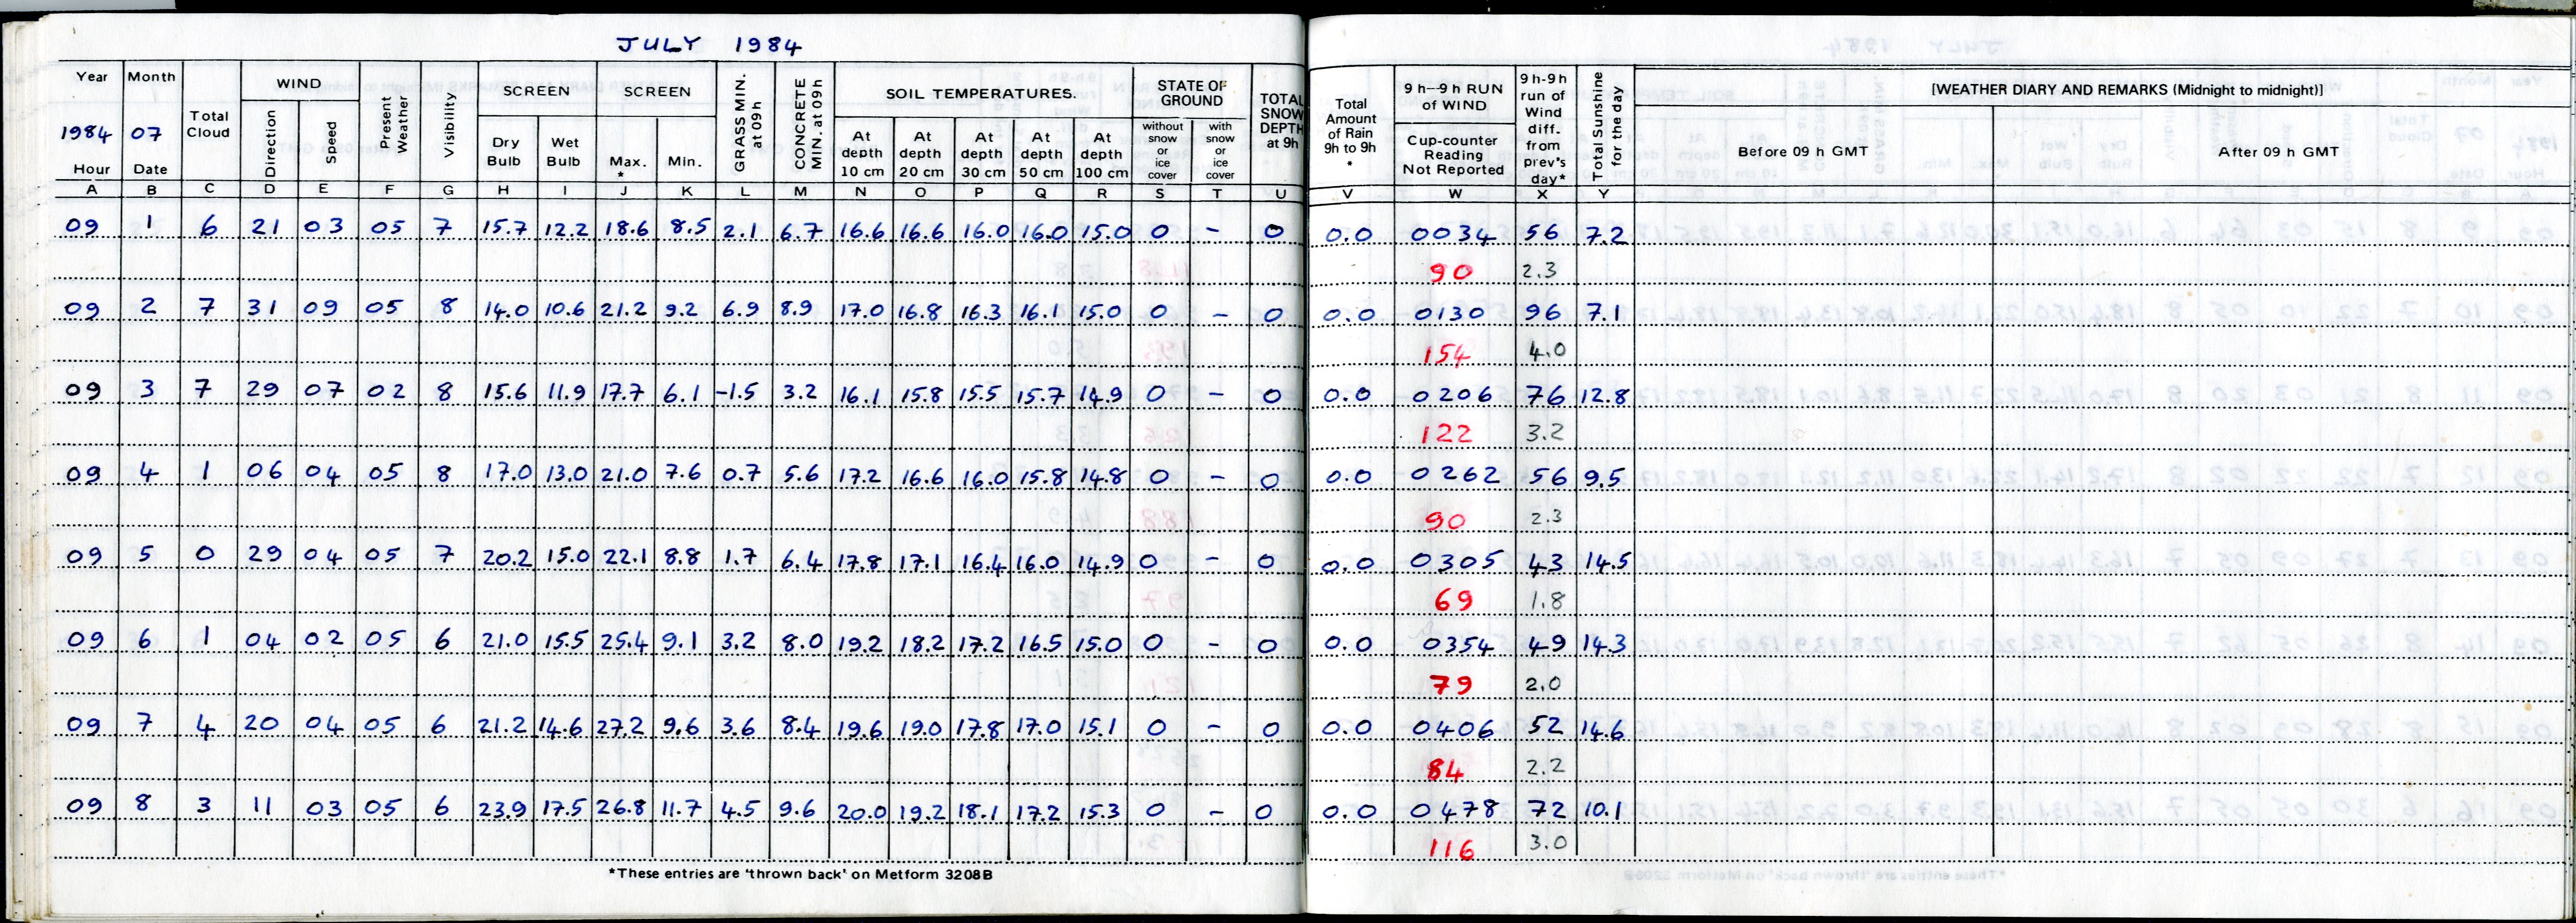 JULY 1984
Year Month Total Cloud WIND Present Weather Visibility SCREEN SCREEN GRASS MIN. at 09h CONCRETE MIN. at 09h SOIL TEMPERATURES. STATE OF GROUND TOTAL SNOW DEPTH at 9h Total Amount of Rain 9h to 9h * 9 h--9 h RUN of WIND 9 h-9h run of Wind diff. from prev's day* Total Sunshine for the day [WEATHER DIARY AND REMARKS (Midnight to midnight)]
1984 07 Direction Speed Dry Bulb Wet Bulb Max. * Min. At depth 10 cm At depth 20 cm At depth 30 cm At depth 50 cm At depth 100 cm without snow or ice cover with snow or ice cover Cup-counter Reading Not Reported Before 09 h GMT After 09 h GMT
Hour Date
A B C D E F G H I J K L M N O P Q R S T U V W X Y
09 1 6 21 03 05 7 15.7 12.2 18.6 8.5 2.1 6.7 16.6 16.6 16.0 16.0 15.0 0 - 0 0.0 0034 56 7.2
90 2.3
09 2 7 31 09 05 8 14.0 10.6 21.2 9.2 6.9 8.9 17.0 16.8 16.3 16.1 15.0 0 - 0 0.0 0130 96 7.1
154 4.0
09 3 7 29 07 02 8 15.6 11.9 17.7 6.1 -1.5 3.2 16.1 15.8 15.5 15.7 14.9 0 - 0 0.0 0206 76 12.8
122 3.2
09 4 1 06 04 05 8 17.0 13.0 21.0 7.6 0.7 5.6 17.2 16.6 16.0 15.8 14.8 0 - 0 0.0 0262 56 9.5
90 2.3
09 5 0 29 04 05 7 20.2 15.0 22.1 8.8 1.7 6.4 17.8 17.1 16.4 16.0 14.9 0 - 0 0.0 0305 43 14.5
69 1.8
09 6 1 04 02 05 6 21.0 15.5 25.4 9.1 3.2 8.0 19.2 18.2 17.2 16.5 15.0 0 - 0 0.0 0354 49 14.3
79 2.0
09 7 4 20 04 05 6 21.2 14.6 27.2 9.6 3.6 8.4 19.6 19.0 17.8 17.0 15.1 0 - 0 0.0 0406 52 14.6
84 2.2
09 8 3 11 03 05 6 23.9 17.5 26.8 11.7 4.5 9.6 20.0 19.2 18.1 17.2 15.3 0 - 0 0.0 0478 72 10.1
116 3.0
*These entries are 'thrown back' on Metform 3208B